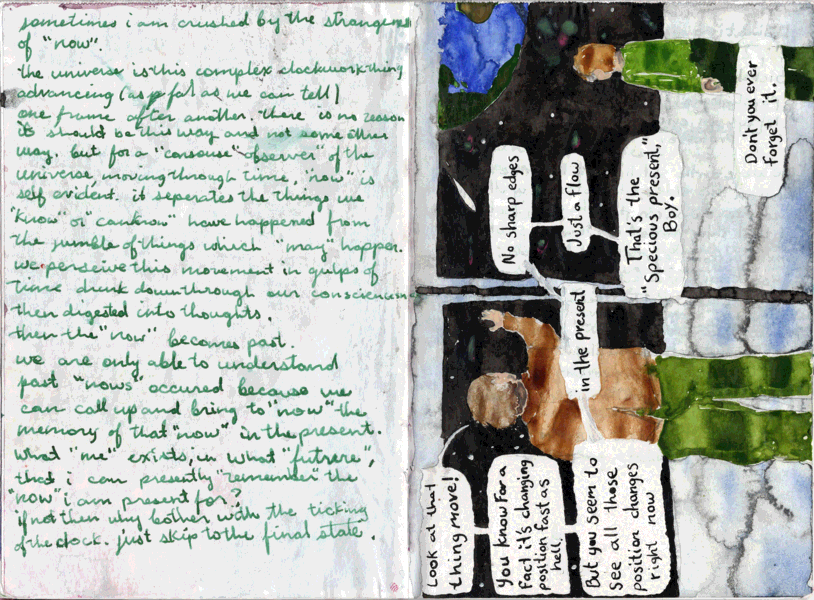 sometimes i am crushed by the strangeness
of "now".
the universe is this complex clockwork thing
advancing (as far as we can tell)
one frame after another. there is no reason
it should be this way and not some other
way. but for a "consouse" observer" of the
universe, moving through time, "now" is
self evident. it seperates the things we
"know" or "canknow" have happened from
the jumble of things which "may" happen.
we perceive this movement in gulps of
time drunk down through our
then digested into thoughts.
then the "now" becomes past.
we are only able to understand
past "nows" occured because we
can call up and bring to "now" the
memory of that "now" in the present.
what "me" exists, in what "future",
that i can presently "remember" the
"now" i am present for?
if not then why bother with the ticking
of the clock. just skip to the final state.
Look at that
thing move!
You know for a
fact it's changing
position fast as
hell.
But you seem to
see all those
position changes
right now
in the present
No sharp edges
Just a flow
That's the
"Specious present,"
Boy.
Don't you ever
forget it.